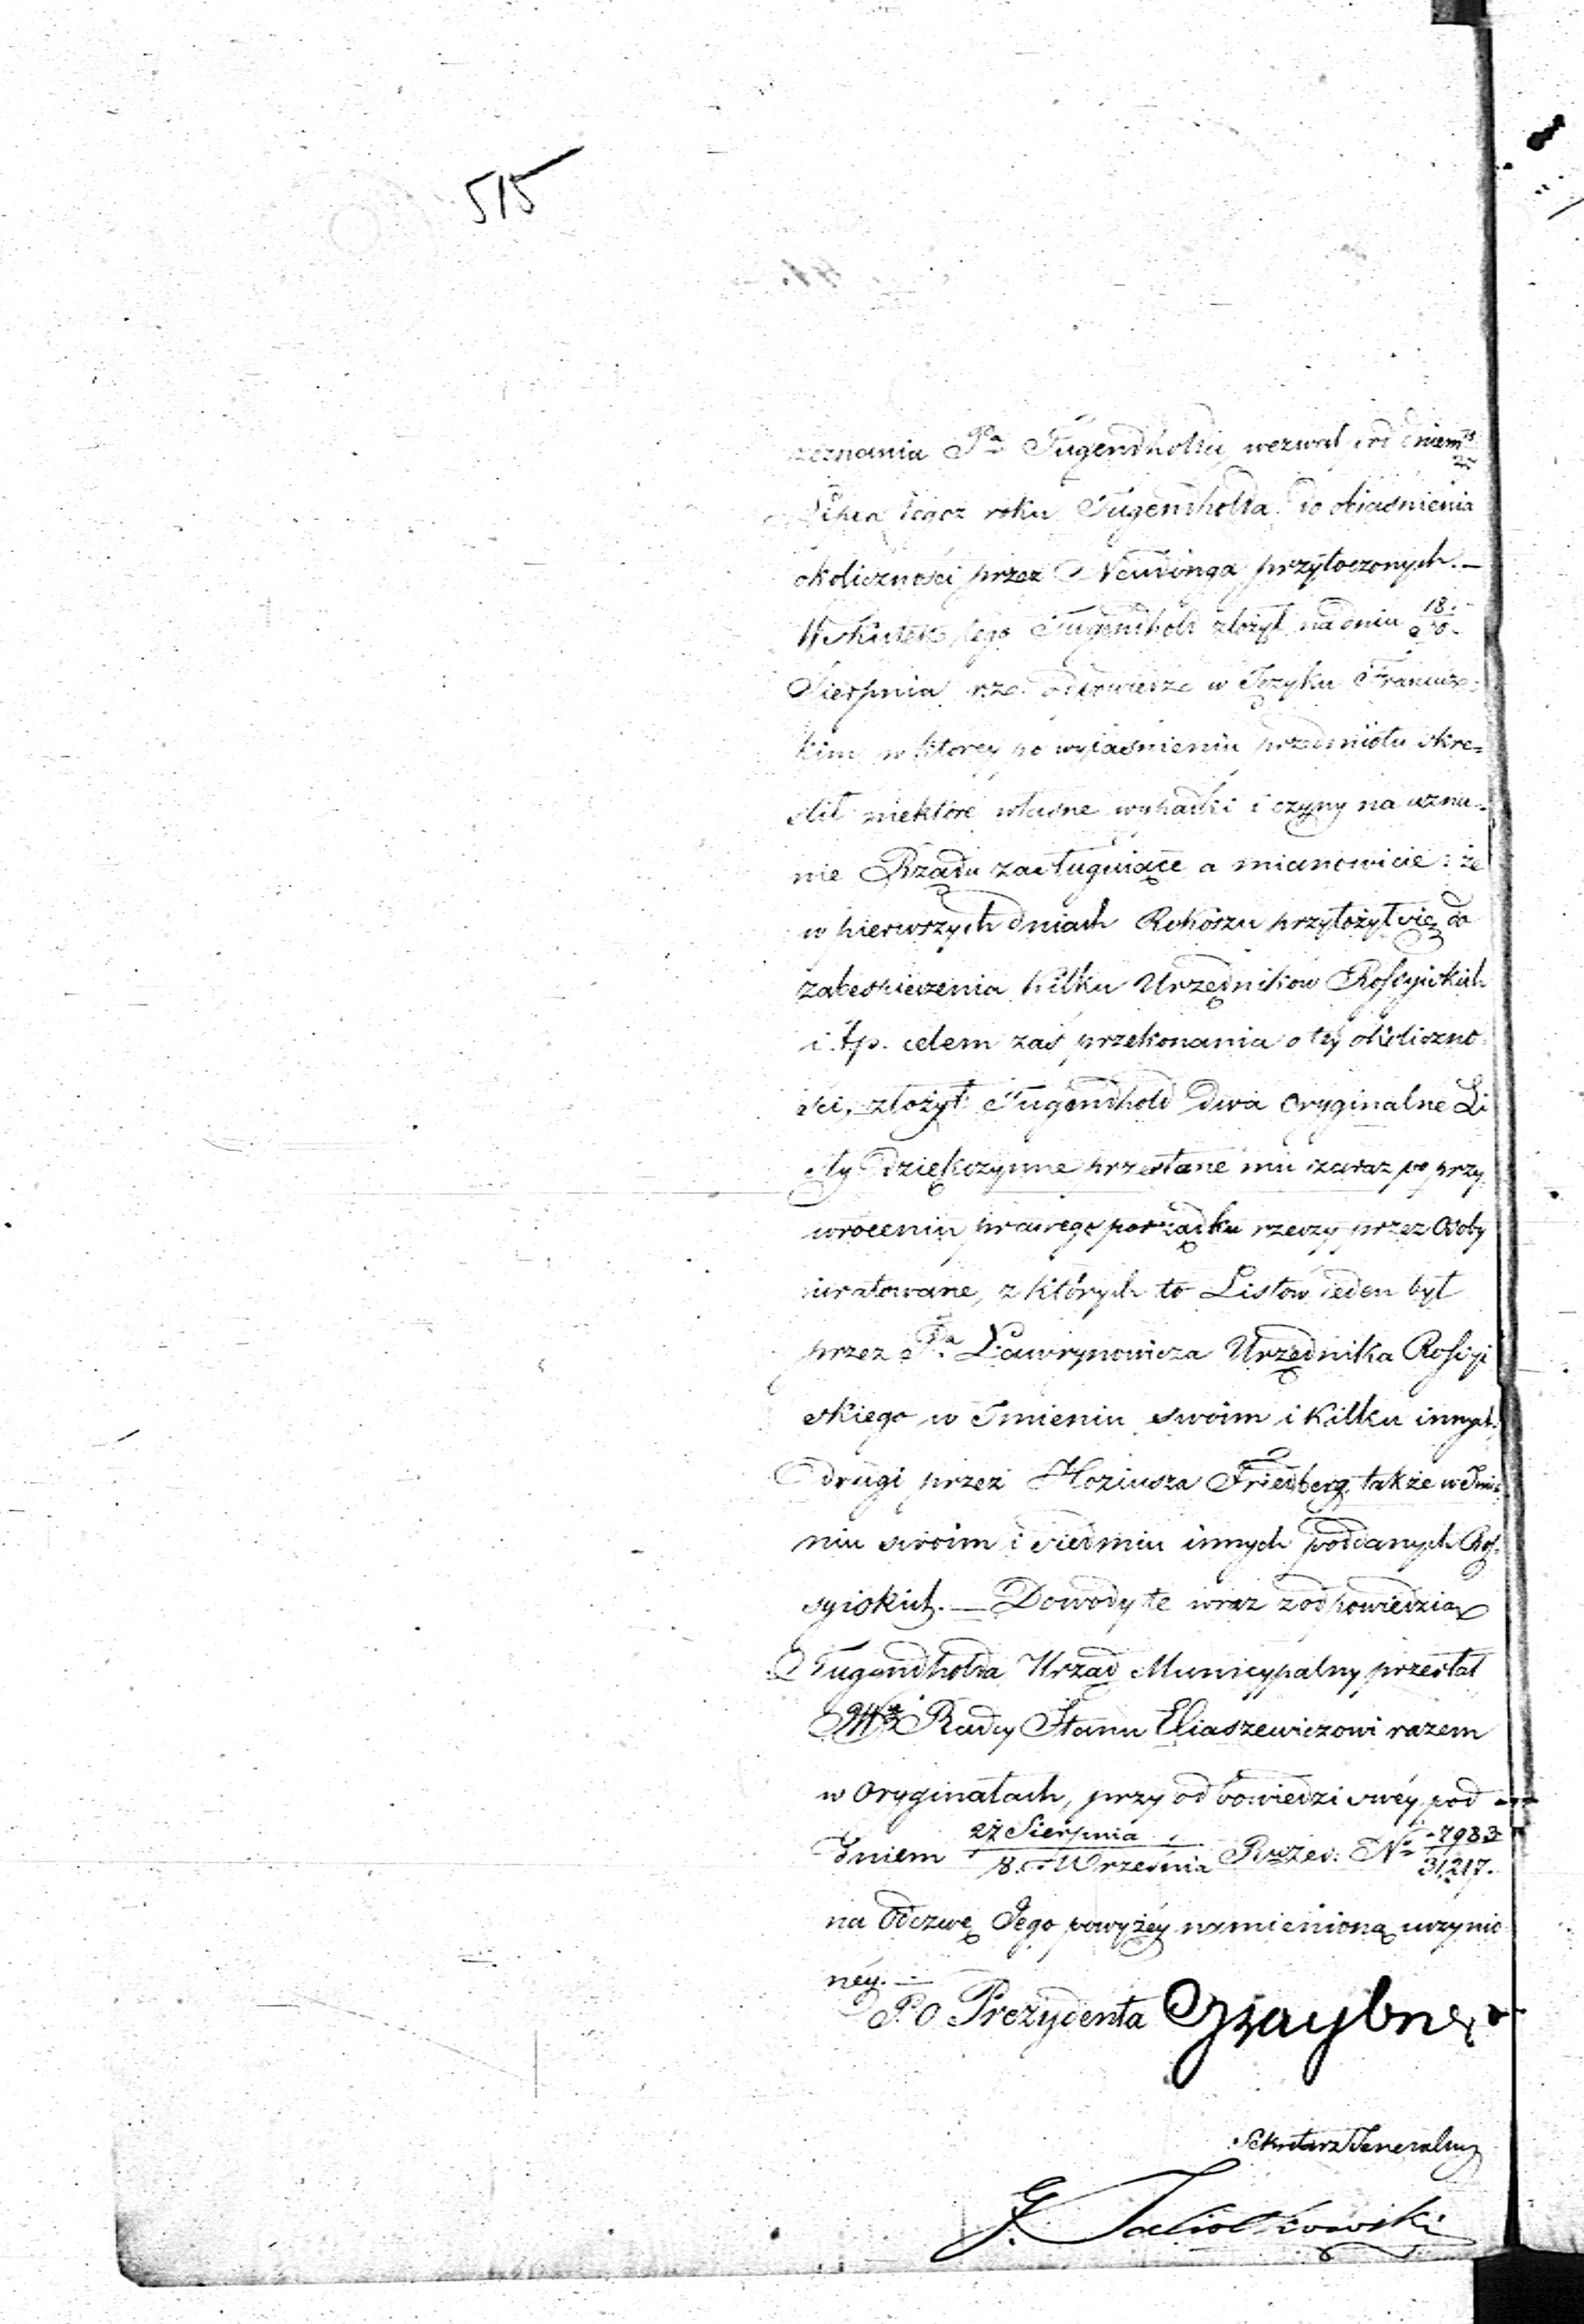 515
zeznania Pa Tugendholda, wezwał pod dniem
Lipca tegoż roku Tugendholda do obiaśnienia
okoliczności przez Neudinga przytoczonych. —
W skutek tego Tugendhold złożył na dniu 18/30
Sierpnia rze. odpowiedź w Języku Francuz=
kim w ktorey po wyiaśnieniu przedmiotu skre=
slił niektóre własne wypadki i czyny na uzna-
nie Rządu zasługuiące a mianowicie: że
w pierwszych dniach Rokoszu przyłożył się do
zabespieczenia kilku Urzędnikow Rossyiskich
i. t.p. celem zaś przekonania o tey okoliczno
ści, złożył Tugendhold dwa oryginalne Li
sty dziękczynne przesłane mu zaraz po przy
wroceniu prawego porządku rzeczy przez Osoby
uratowane, z których to Listow ieden był
przez Pa Ławrynowicza Urzędnika Rossyi
skiego w Imieniu swoim i kilku innych
drugi przez Hoziusza Friedberg także w Imie
niu swoim i siedmiu innych poddanych Ros-
syiskich. — Dowody te wraz z odpowiedzią
Tugendholda Urząd Municypalny przesłał
JW Radcy Stanu Eliaszewiczowi razem
w Oryginałach, przy odpowiedzi swéy pod
dniem 27 Sierpnia / 8. Września No 7983 / 31,217.
na Odezwę Jego powyżéy namienioną uczynio
néy. —
P. O Prezydenta
Sekretarz Jeneralny